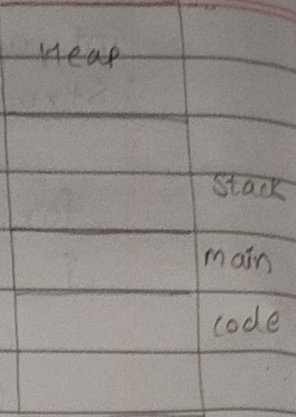 Heap
Stack
main
code